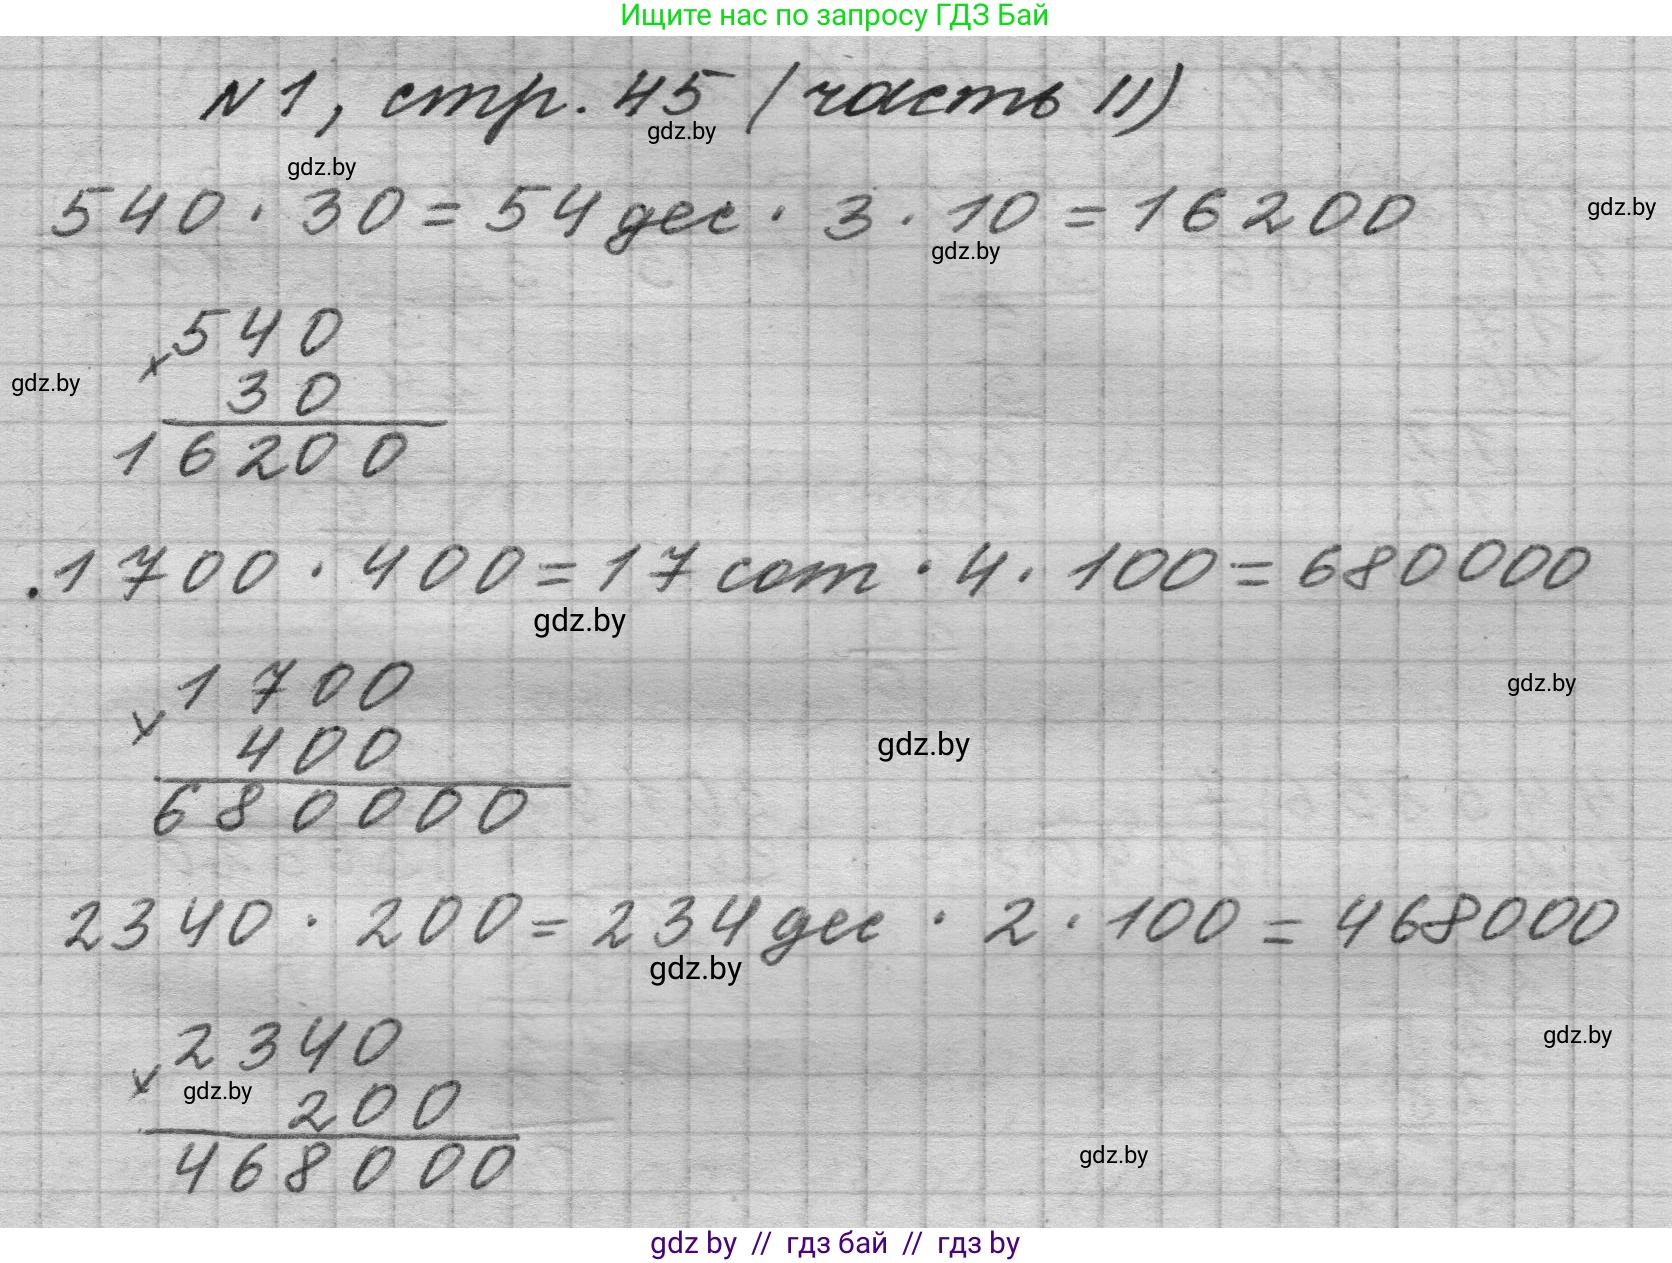 Ищите нас по запросу ГДЗ Бай
N1, стр. 45 (часть II)
gdz.by
gdz.by
540 · 30 = 54 дес · 3 · 10 = 16200
gdz.by
gdz.by
540
×
30
gdz.by
16200
.1700 · 400 = 17 сот · 4 · 100 = 680000
gdz.by
1700
gdz.by
×
400
gdz.by
680000
2340 · 200 = 234 дес · 2 · 100 = 468000
gdz.by
2340
gdz.by
×
gdz.by
200
468000
gdz.by
gdz by // гдз бай // гдз by